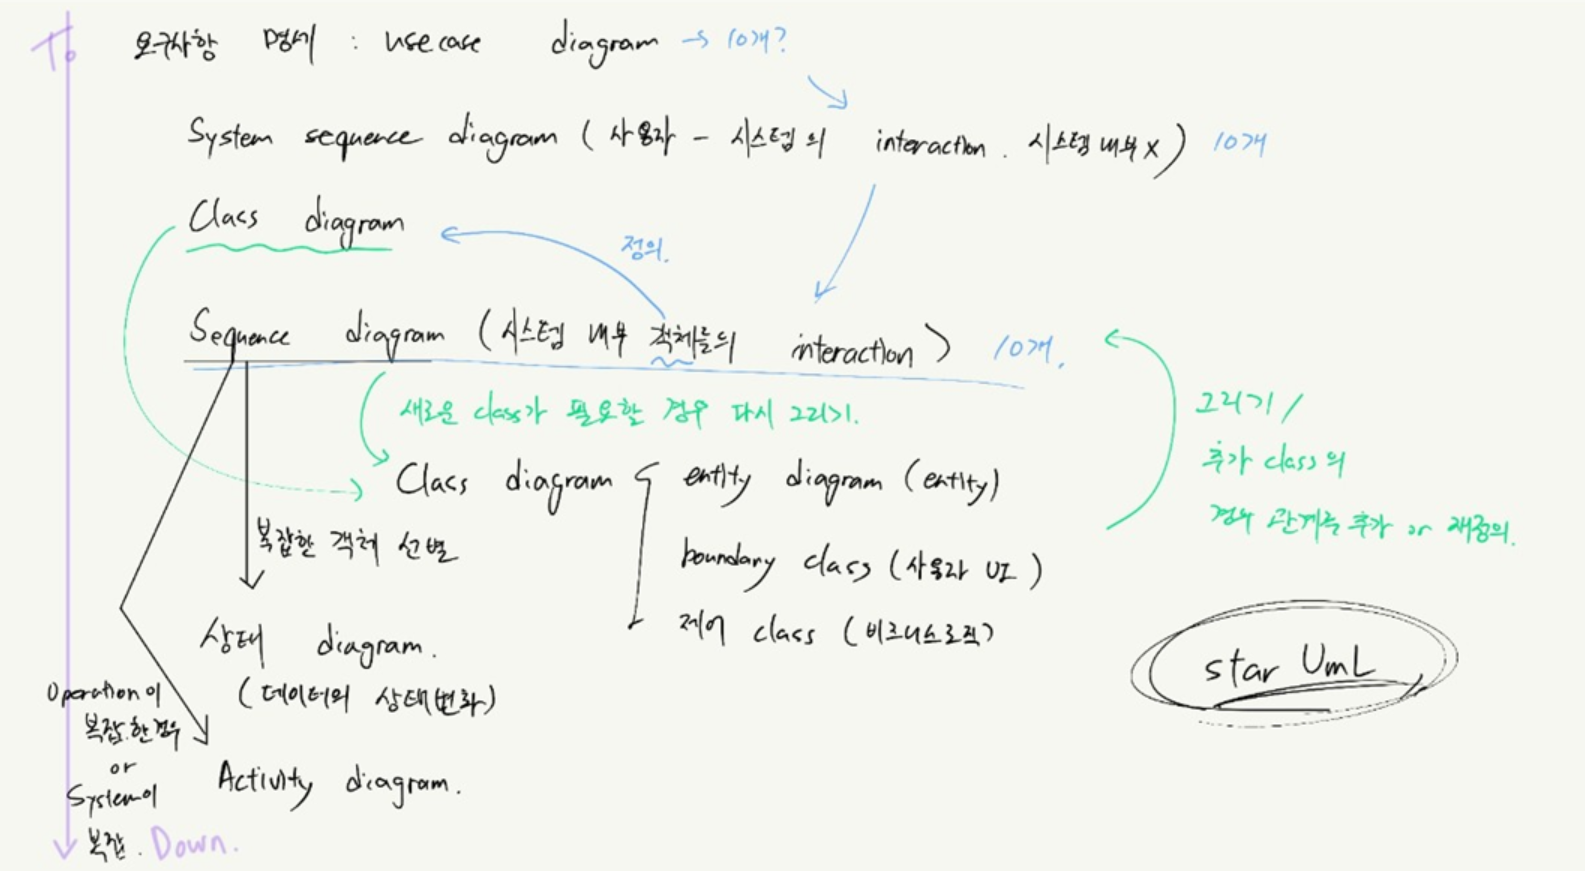 To
요구사항 명세 : usecase diagram → 10개?
System sequence diagram ( 사용자 - 시스템의 interaction. 시스템 내부 X ) 10개
Class diagram
정의.
Sequence diagram ( 시스템 내부 객체들의 interaction ) 10개.
새로운 class가 필요할 경우 다시 그리기.
그리기 /
추가 class의
경우 관계를 추가 or 재정의.
Class diagram
entity diagram (entity)
boundary class ( 사용자 UI )
제어 class ( 비즈니스로직 )
복잡한 객체 선별
상태 diagram.
( 데이터의 상태변화 )
star UmL
Operation이
복잡.한경우
or
System이
복잡.
Activity diagram.
Down.